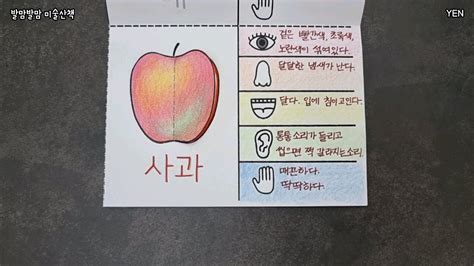 발맘발맘 미술산책
YEN
겉은 빨간색, 초록색,
노란색이 섞여있다.
달달한 냄새가 난다.
달다. 입에 침이 고인다.
통통 소리가 들리고
씹으면 쩍 갈라지는소리
매끈하다.
딱딱하다.
사과